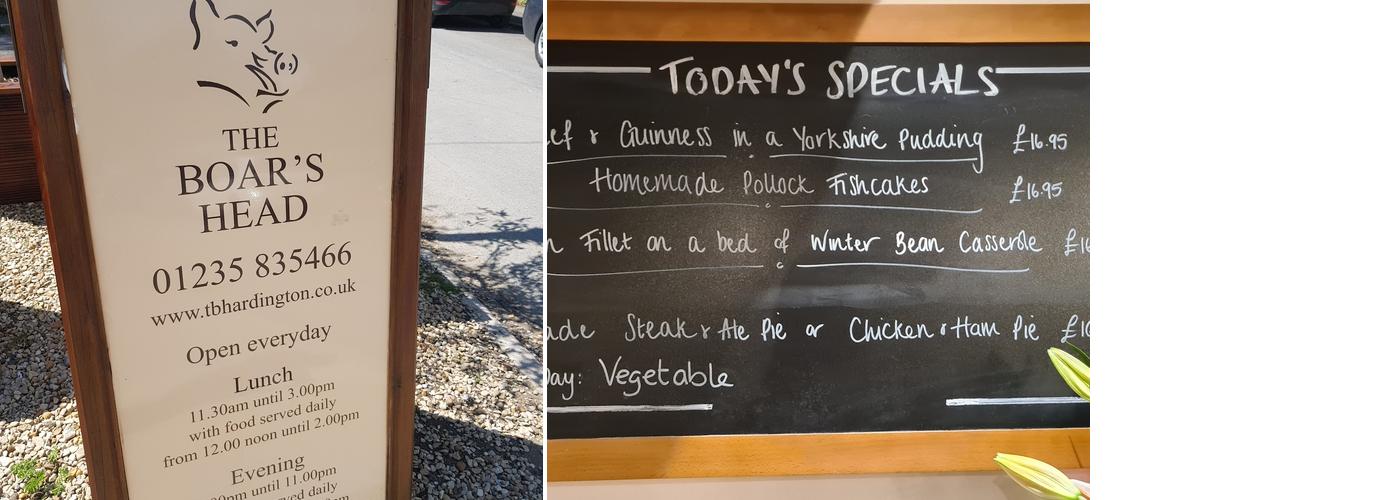 THE
BOAR'S
HEAD
01235 835466
www.tbhardington.co.uk
Open everyday
Lunch
11.30am until 3.00pm
with food served daily
from 12.00 noon until 2.00pm
Evening
until 11.00pm
daily
TODAY'S SPECIALS
& Guinness in a Yorkshire Pudding £16.95
Homemade Pollock Fishcakes £16.95
Fillet on a bed of Winter Bean Casserole
Steak & Ale Pie or Chicken & Ham Pie
Day: Vegetable